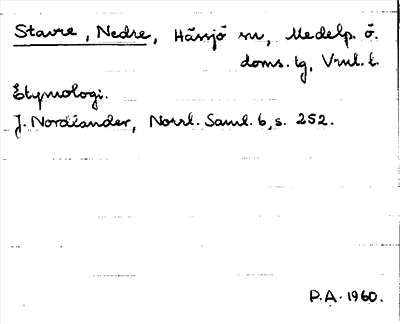 Stavre, Nedre, Hässjö sn, Medelp. ö.
doms. tg, Vnl. l.
Etymologi.
J. Nordlander, Norrl. Saml. 6, s. 252.
P.A. 1960.